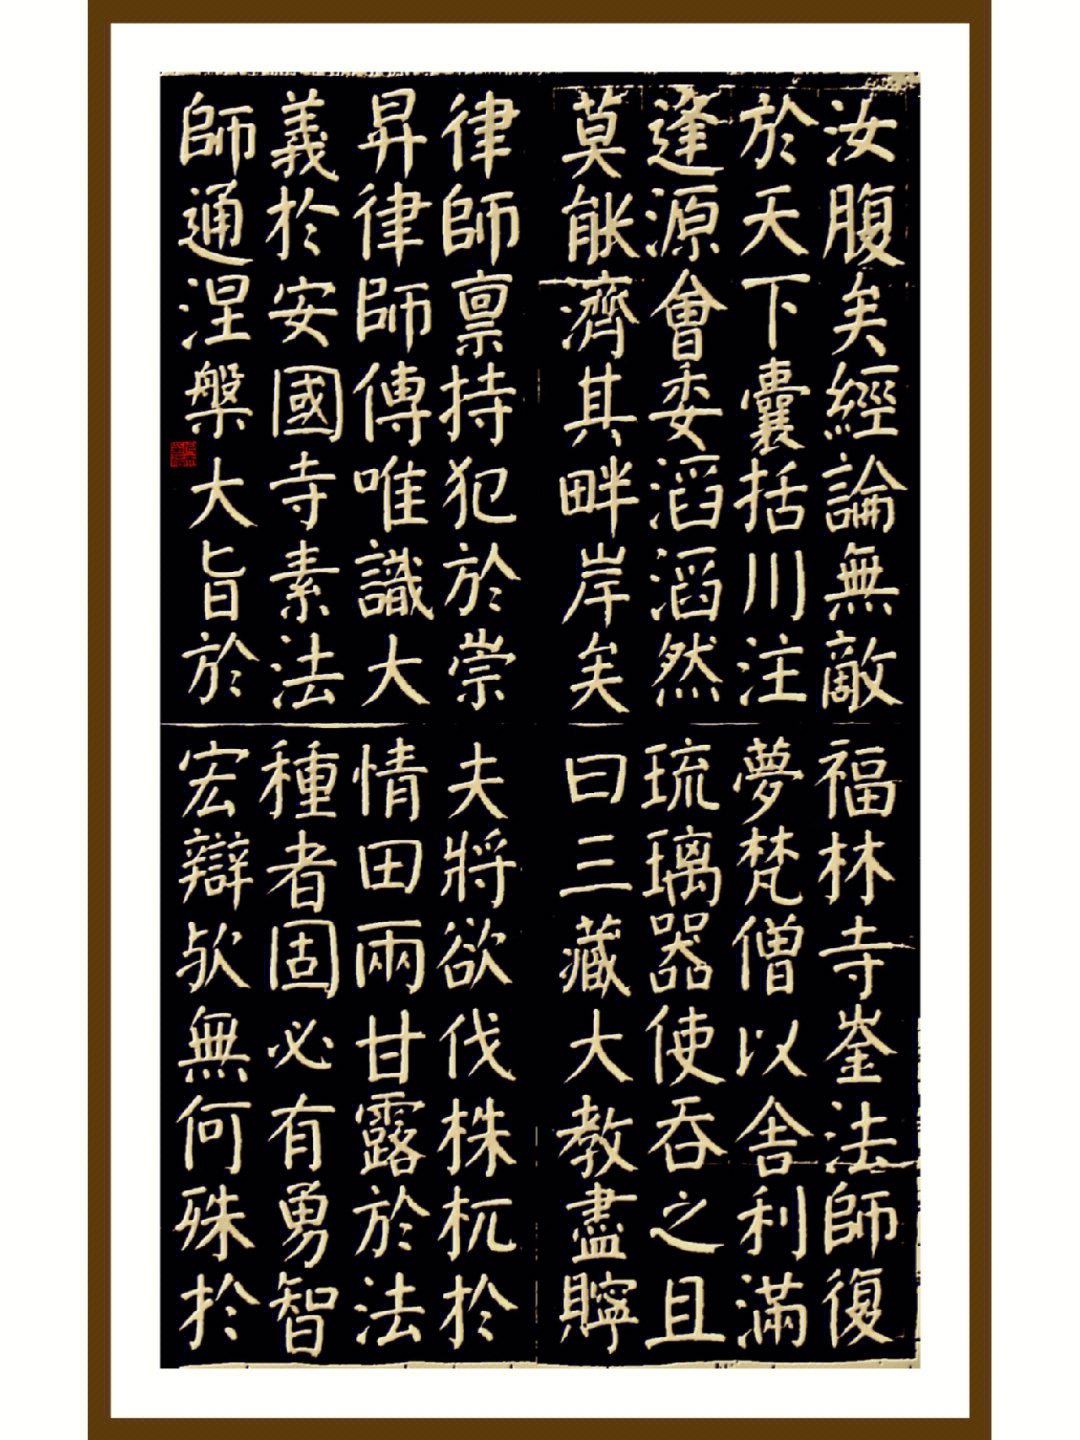 汝腹矣經論無敵
於天下囊括川注
逢源會委滔滔然
莫能濟其畔岸矣
律師禀持犯於崇
昇律師傳唯識大
義於安國寺素法
師通涅槃大旨於
福林寺崟法師復
夢梵僧以舍利滿
琉璃器使吞之且
曰三藏大教盡貯
夫將欲伐株杌於
情田雨甘露於法
種者固必有勇智
宏辯欤無何殊於